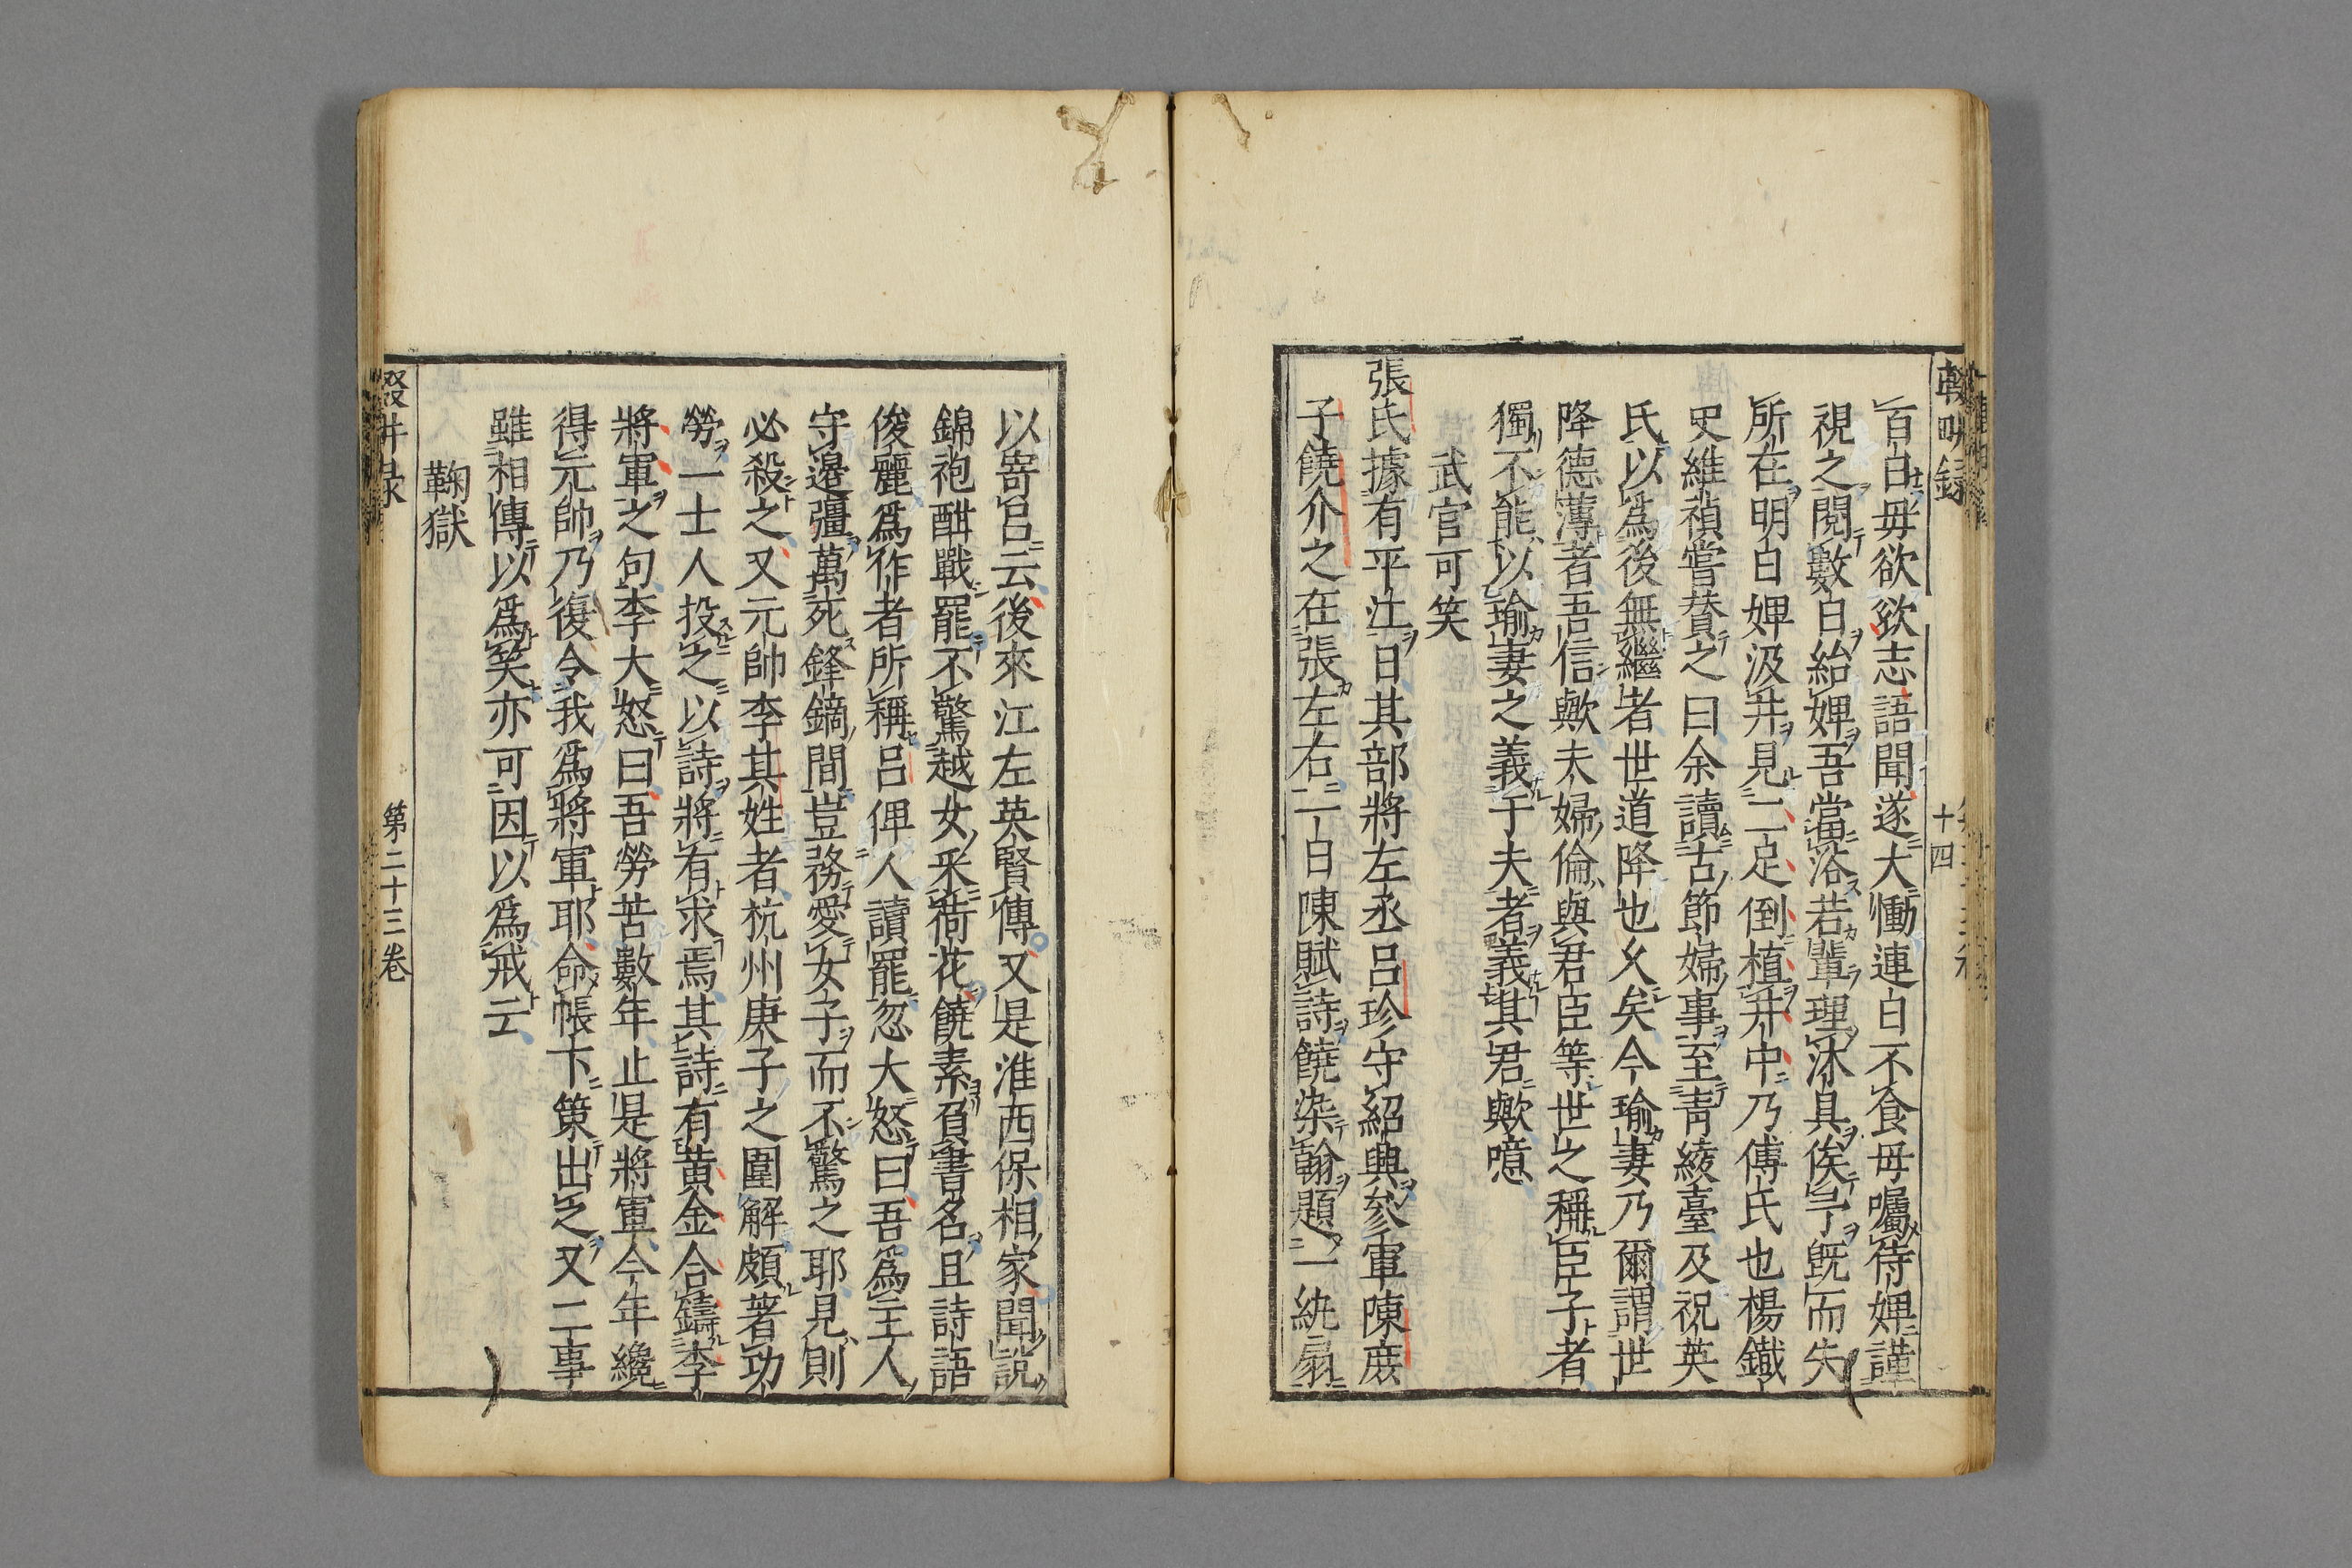 輟畊録
十四
百日毋欲欸志語聞遂大慟連日不食毋囑侍婢謹
視之閱數日紿婢吾當浴若輩理沐具俟乎旣而失
所在明日婢汲井見二足倒植井中乃傅氏也楊鐵
史維禎嘗賛之曰余讀古節婦事至靑綾臺及祝英
氏以爲後無繼者世道降也乆矣今瑜妻乃爾謂世
降德薄者吾信歟夫婦倫與君臣等世之稱臣子者
獨不能以瑜妻之義于夫者義其君歟噫
武官可笑
張氏據有平江日其部將左丞呂珍守紹興參軍陳庻
子饒介之在張左右一日陳賦詩饒染翰題一紈扇
以寄呂云後來江左英賢傳又是淮西保相家聞說
錦袍酣戰罷不驚越女采荷花饒素負書名且詩語
俊麗爲作者所稱呂俾人讀罷忽大怒曰吾爲主人
守邊疆萬死鋒鏑間豈務愛女子而不驚之耶見則
必殺之又元帥李其姓者杭州庚子之圍解頗著功
勞一士人投之以詩將有求焉其詩有黄金合鑄李
將軍之句李大怒曰吾勞苦數年止是將軍今年纔
得元帥乃復令我爲將軍耶命帳下策出之又二事
雖相傳以爲笑亦可因以爲戒云
鞠獄
輟畊录
第二十三卷